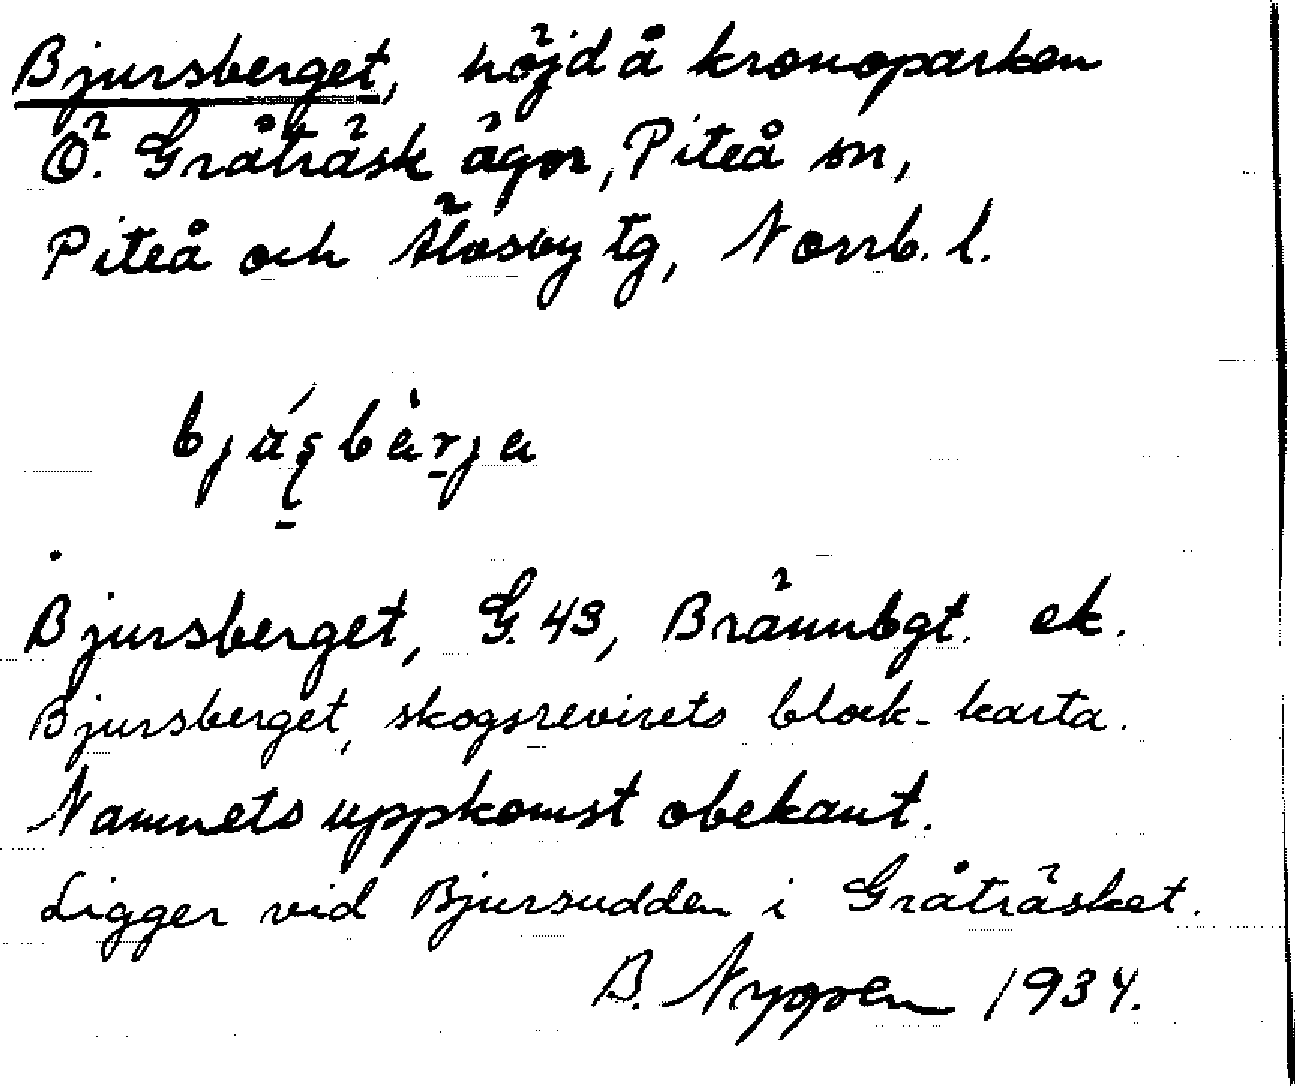 Bjursberget, höjd å kronoparken
Ö. Gråträsk ägor, Piteå sn,
Piteå och Älvsby tg, Norrb. l.
Bjursberget, G. 43, Brännbgt. ek.
Bjursberget, skogsrevirets block-karta.
Namnets uppkomst obekant.
Ligger vid Bjursudden i Gråträsket.
B. Nygren 1934.